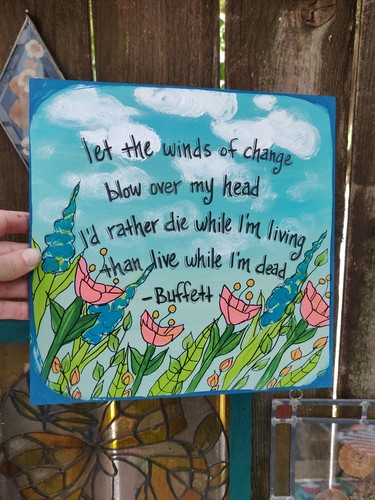 let the winds of change
blow over my head
I'd rather die while I'm living
than live while I'm dead
-Buffett